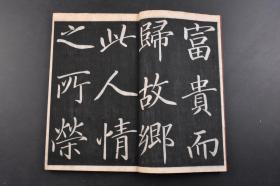 富貴而
歸故鄉
此人情
之所榮